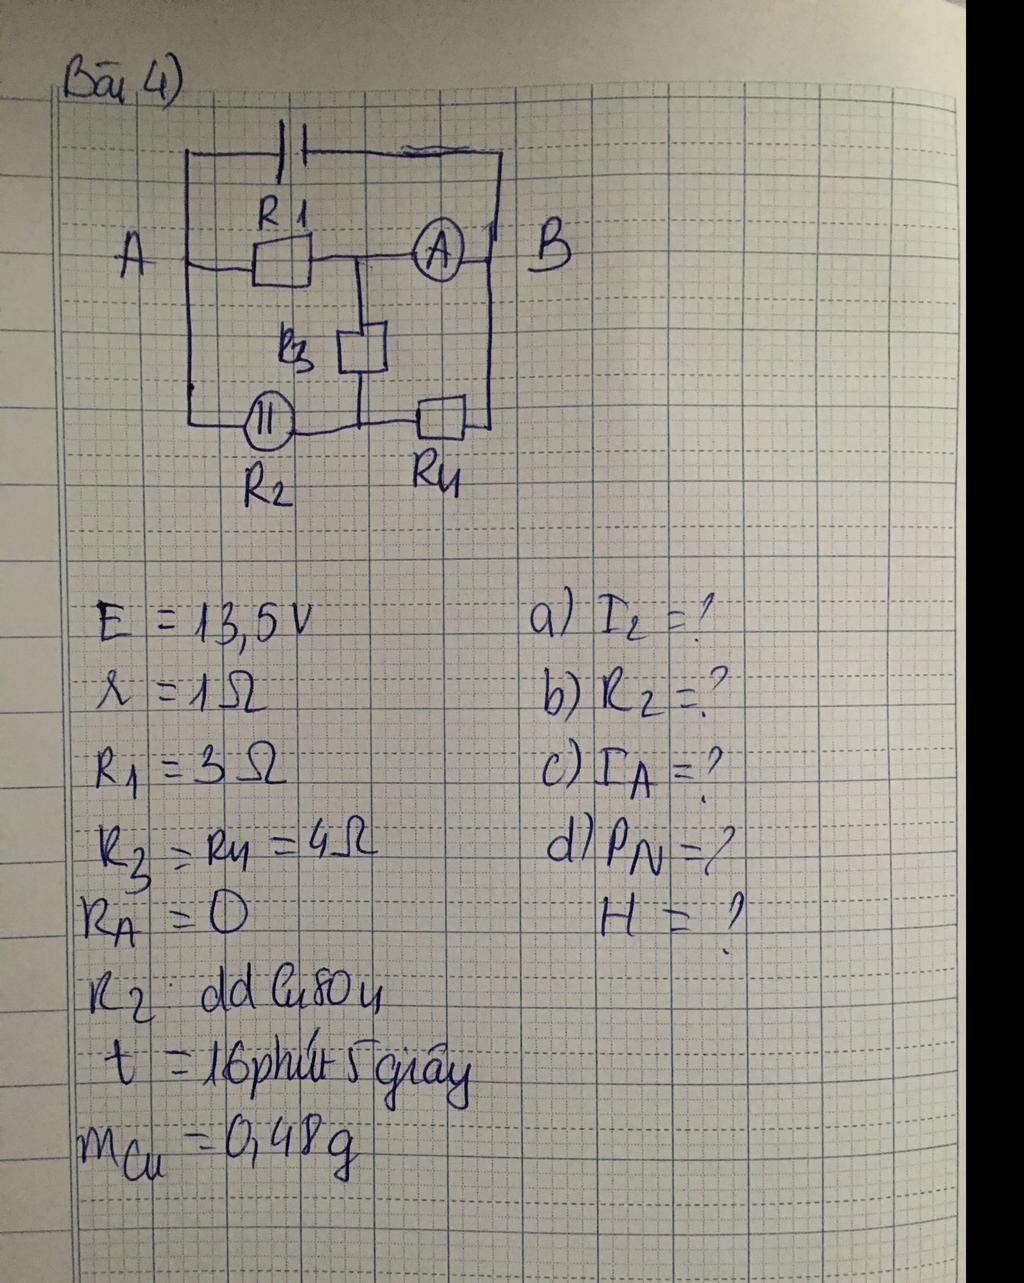 Bài 4)
R1
A
A
B
R3
R2
R4
E = 13,5V
r = 1Ω
R1 = 3Ω
R3 = R4 = 4Ω
RA = 0
R2 : dd CuSO4
t = 16 phút 5 giây
mCu = 0,48g
a) I2 = ?
b) R2 = ?
c) IA = ?
d) PN = ?
H = ?